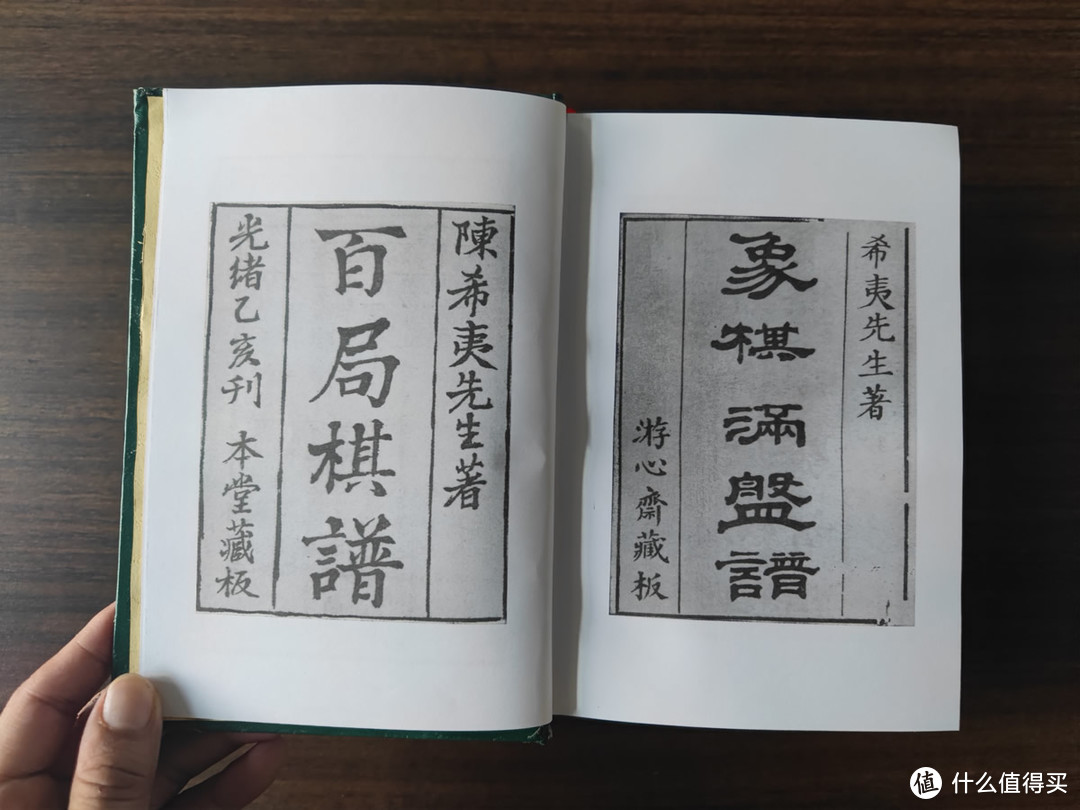 陳希夷先生著
百局棋譜
光緒乙亥刊 本堂藏板
希夷先生著
象棋滿盤譜
游心齋藏板
值 什么值得买